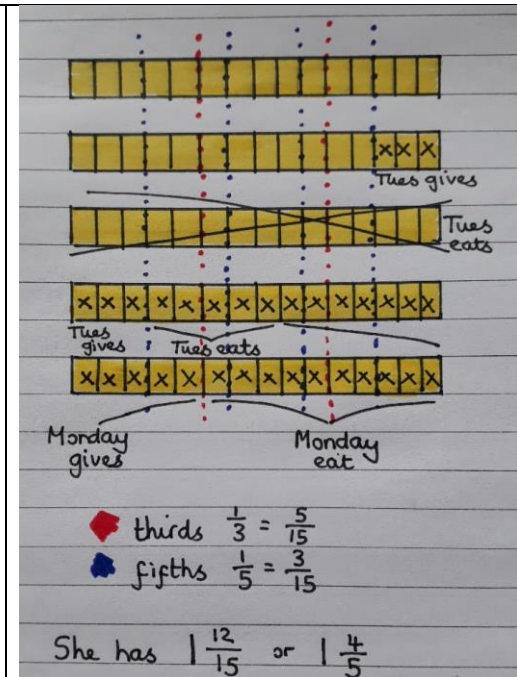 x x x
Tues gives
Tues
eats
x x x x x x x x x x x x x x x
Tues
gives
Tues eats
x x x x x x x x x x x x x x x
Monday
gives
Monday
eat
thirds 1/3 = 5/15
fifths 1/5 = 3/15
She has 1 12/15 or 1 4/5